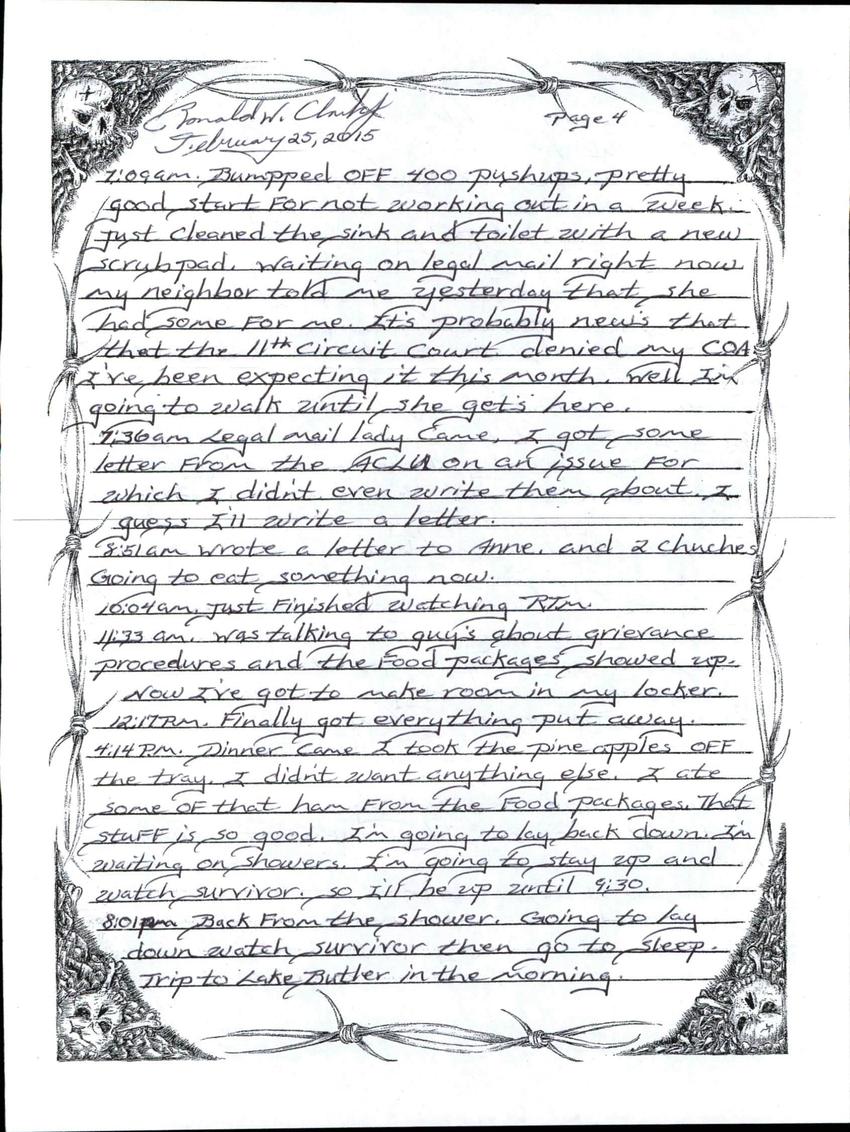 Ronald W. Clark Jr
Page 4
February 25, 2015
7:09am. Bumpped OFF 400 pushups, pretty
good start For not working out in a week.
Just cleaned the sink and toilet with a new
scrub pad. Waiting on legal mail right now
my neighbor told me yesterday that she
had some For me. It's probably news that
that the 11th Circuit Court denied my COA
I've been expecting it this month. Well I'm
going to walk until she get's here.
7:36am Legal mail lady came, I got some
letter From the ACLU on an issue For
which I didn't even write them about. I
guess I'll write a letter.
8:51am wrote a letter to Anne. and 2 chuches
Going to eat something now.
10:04am. Just Finished watching RTM.
11:33 am. was talking to guy's about grievance
procedures and the Food packages showed up.
Now I've got to make room in my locker.
12:17P.m. Finally got everything put away.
4:14 P.M. Dinner came I took the pineapples OFF
the tray. I didn't want anything else. I ate
some OF that ham From the Food packages. That
stuFF is so good. I'm going to lay back down. I'm
waiting on showers. I'm going to stay up and
watch survivor. so I'll be up until 9:30.
8:01pm Back From the shower. Going to lay
down watch survivor then go to sleep.
Trip to Lake Butler in the morning.